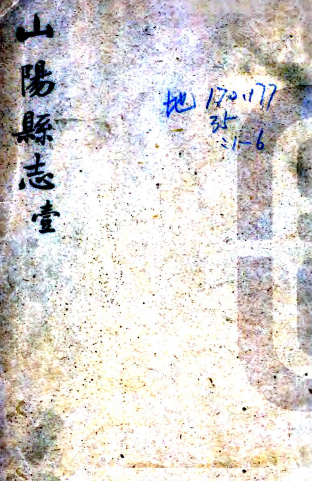 山陽縣志壹
地 170.177
35
:1-6